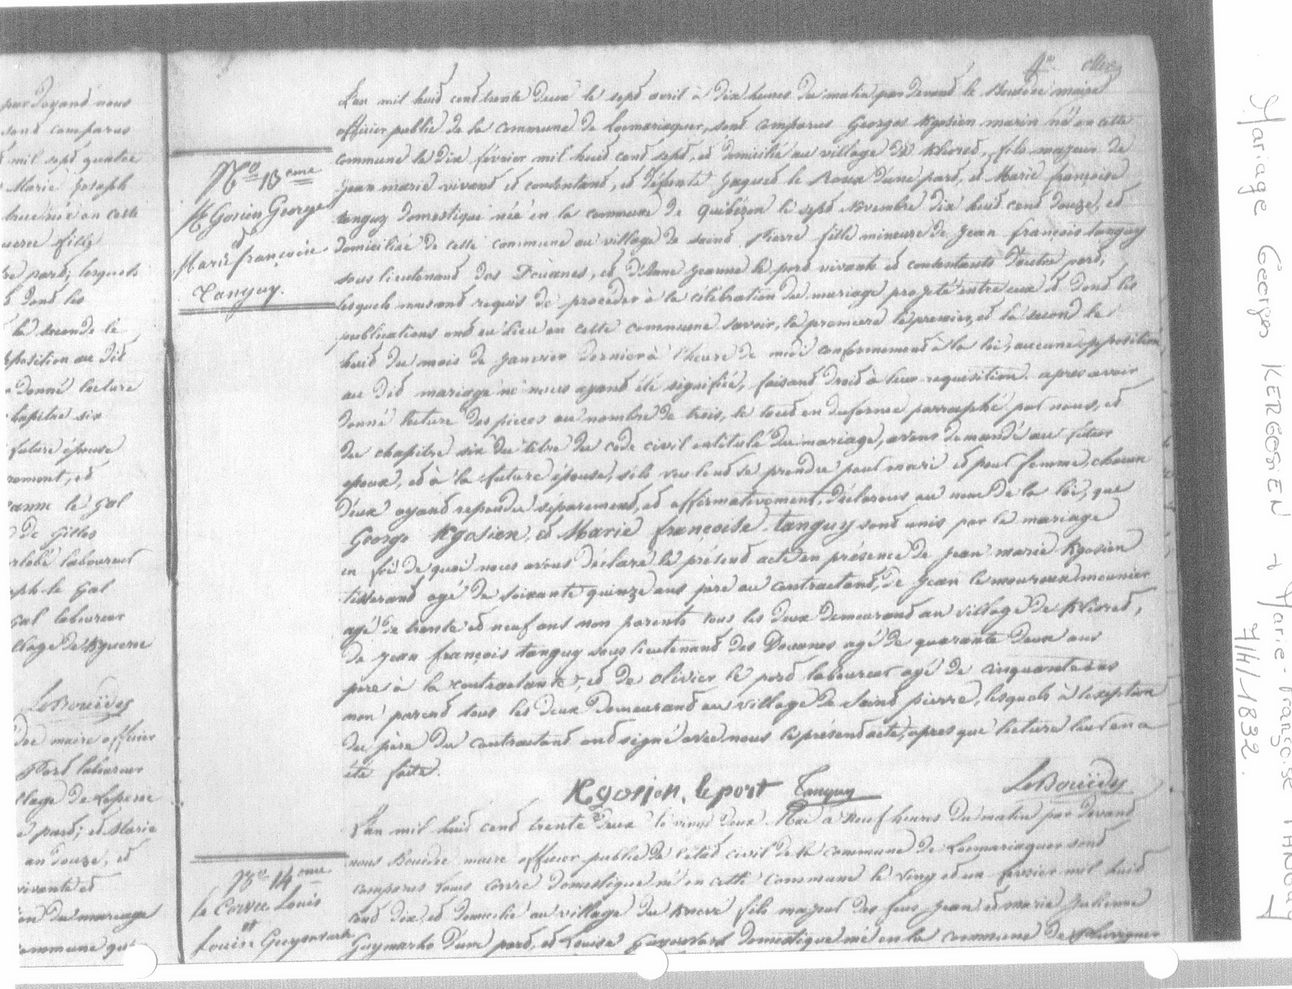 par devant nous
sont comparus
mil sept quatre
Marie Joseph
née en cette
fille
part, lesquels
dont les
la seconde le
opposition au dit
donné lecture
chapitre six
future épouse
, et
le Gal
de Gilles
laboureur
Joseph le Gal
Gal laboureur
village de Kguerne
LeBouëdec
maire officier
Port laboureur
village de
part; et Marie
an douze, et
vivante et
du mariage
commune
No 13eme
Kgosien George
et
Marie françoise
Tanguy.
No 14eme
le Corvec Louis
et
Louise
L'an mil huit cent trente deux le sept avril à dix heures du matin par devant le Bouëdec maire
officier public de la commune de Locmariaquer, sont comparus Georges Kgosien marin né en cette
commune le dix février mil huit cent sept, et domicilié au village de , fils majeur de
jean marie vivant et consentant, et défunte Jaquete le Roux d'une part, et Marie françoise
tanguy domestique née en la commune de Quibéron le sept novembre dix huit cent douze, et
domiciliée de cette commune au village de saint Pierre fille mineure de Jean françois tanguy
sous lieutenant des Douanes, et d'Anne Jeanne le port vivante et consentants d'autre part,
lesquels nous ont requis de procéder à la célébration du mariage projeté entre eux et dont les
publications ont eu lieu en cette commune savoir, la premiere le premier, et la second le
huit du mois de janvier dernier à l'heure de midi conformement à la loi, aucune opposition
au dit mariage ne nous ayant été signifiée, faisant droit à leur requisition. apres avoir
donné lecture des pieces au nombre de trois, le tout en duforme parraphé par nous, et
du chapitre six du titre du code civil intitulé du mariage, avons demandé au futur
epoux, et à la future épouse, s'ils veulent se prendre pour mari et pour femme, chacun
d'eux ayant repondu séparement, et affirmativement, déclarons au nom de la loi, que
George Kgosien, et Marie françoise tanguy sont unis par le mariage
en foi de quoi nous avons déclaré le présent acte en présence de Jean marie Kgosien
tisserand agé de soixante quinze ans père au contractant, de Jean le mouroux meunier
agé de trente et neuf ans non parents tous les deux demeurant au village de ,
de Jean françois tanguy sous lieutenant des Douanes agé de quarante deux ans
père à la contractante, et de olivier le port laboureur agé de cinquante ans
non parent tous les deux demeurant au village de saint pierre, lesquels à l'exeption
du père du contractant ont signé avec nous le présent acte, apres que lecture leur en a
été faite.
Kgosien, le port Tanguy LeBouëdec
L'an mil huit cent trente deux le vingt deux Mai à Neuf heures du matin par devant
nous Bouëdec maire officier public de l'état civil de la commune de Locmariaquer sont
comparus Louis Corvec domestique né en cette Commune le vingt et un février mil huit
cent dix, et domicilié au village du fils majeur des feus Jean et marie Julienne
d'une part, et Louise domestique née en la commune de
Mariage Georges KERGOSIEN & Marie-Françoise TANGUY
7/4/1832.